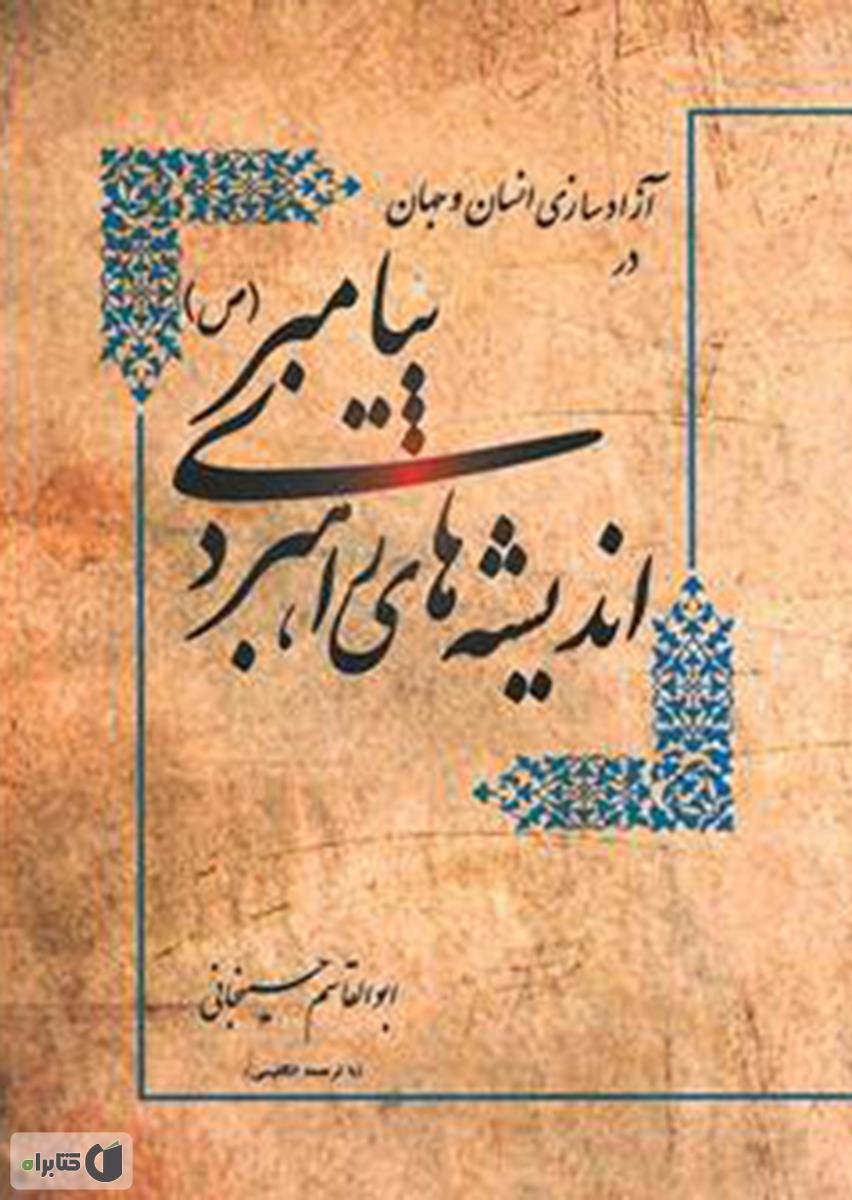 آزادسازی انسان و جهان
در
اندیشه‌های راهبردی
پیامبر (ص)
ابوالقاسم حسینجانی
(با ترجمه انگلیسی)
کتابراه